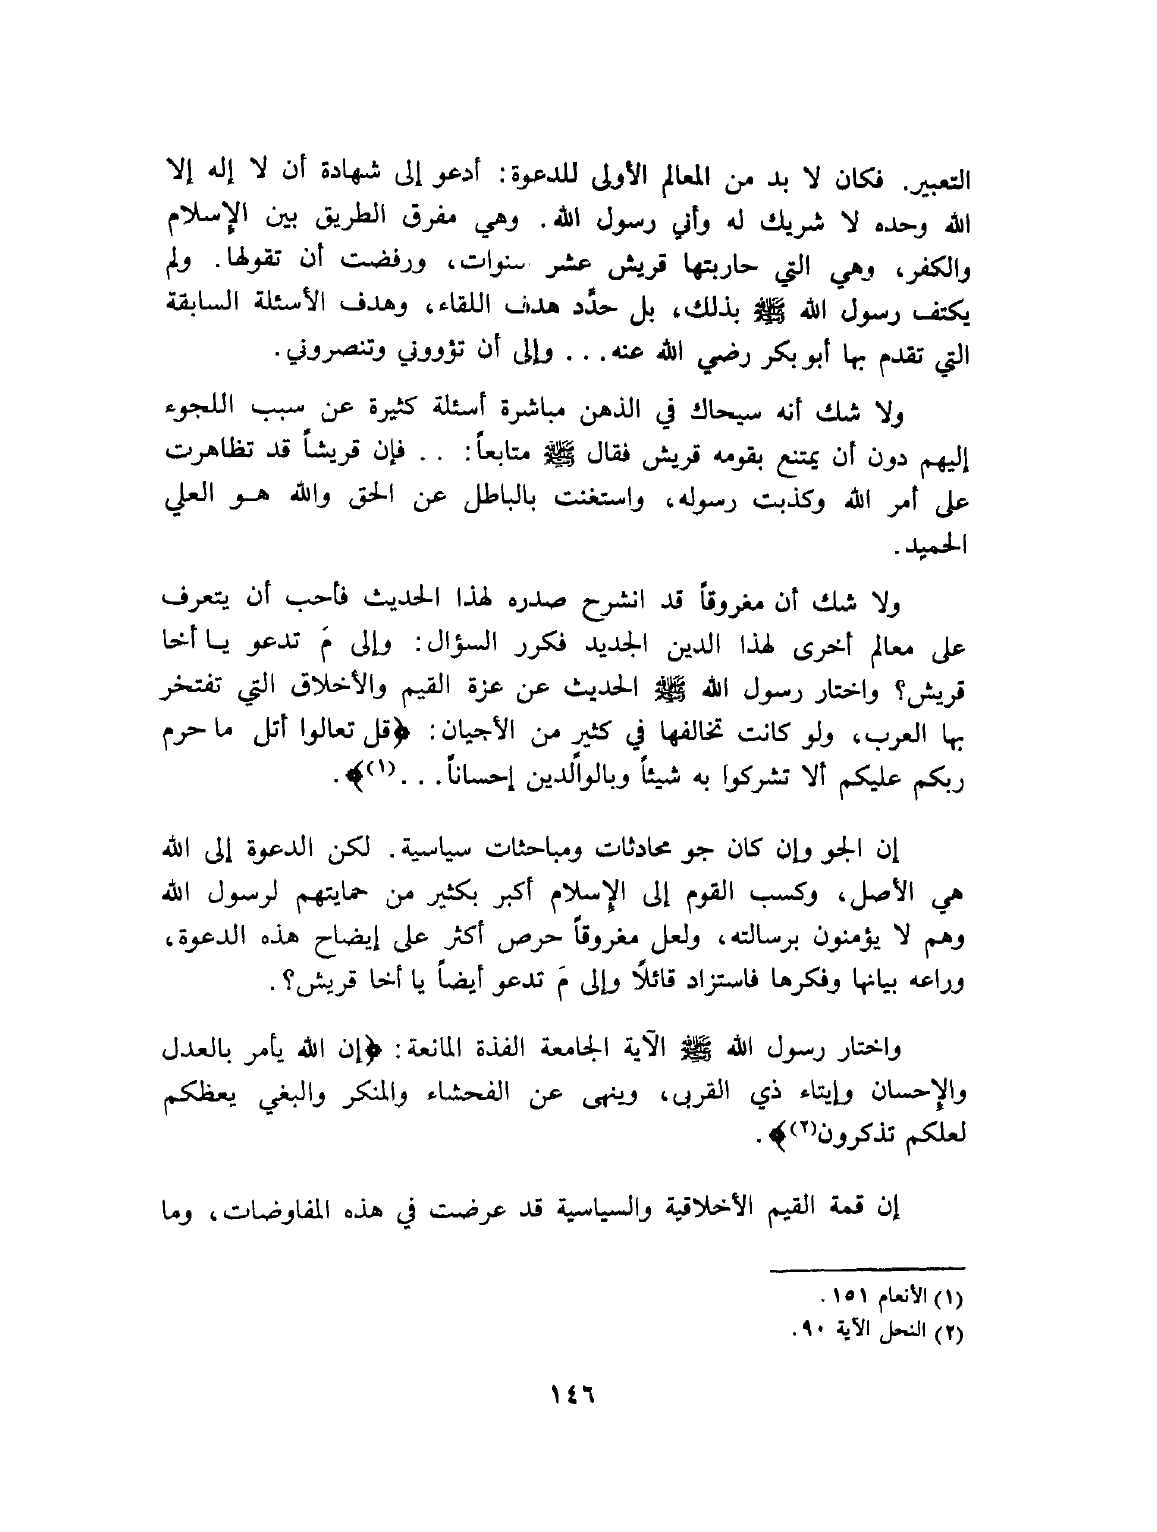 التعبير. فكان لا بد من المعالم الأولى للدعوة: أدعو إلى شهادة أن لا إله إلا
الله وحده لا شريك له وأني رسول الله. وهي مفرق الطريق بين الإسلام
والكفر، وهي التي حاربتها قريش عشر سنوات، ورفضت أن تقولها. ولم
يكتف رسول الله ﷺ بذلك، بل حدَّد هدف اللقاء، وهدف الأسئلة السابقة
التي تقدم بها أبو بكر رضي الله عنه... وإلى أن تؤووني وتنصروني.
ولا شك أنه سيحاك في الذهن مباشرة أسئلة كثيرة عن سبب اللجوء
إليهم دون أن يمتنع بقومه قريش فقال ﷺ متابعاً: .. فإن قريشاً قد تظاهرت
على أمر الله وكذبت رسوله، واستغنت بالباطل عن الحق والله هـو العلي
الحميد.
ولا شك أن مفروقاً قد انشرح صدره لهذا الحديث فأحب أن يتعرف
على معالم أخرى لهذا الدين الجديد فكرر السؤال: وإلى مَ تدعو يـا أخا
قريش؟ واختار رسول الله ﷺ الحديث عن عزة القيم والأخلاق التي تفتخر
بها العرب، ولو كانت تخالفها في كثير من الأجيان: ﴿قل تعالوا أتل ما حرم
ربكم عليكم ألا تشركوا به شيئاً وبالوالدين إحساناً...(١)﴾.
إن الجو وإن كان جو محادثات ومباحثات سياسية. لكن الدعوة إلى الله
هي الأصل، وكسب القوم إلى الإسلام أكبر بكثير من حمايتهم لرسول الله
وهم لا يؤمنون برسالته، ولعل مفروقاً حرص أكثر على إيضاح هذه الدعوة،
وراعه بيانها وفكرها فاستزاد قائلًا وإلى مَ تدعو أيضاً يا أخا قريش؟.
واختار رسول الله ﷺ الآية الجامعة الفذة المانعة: ﴿إن الله يأمر بالعدل
والإحسان وإيتاء ذي القربى، وينهى عن الفحشاء والمنكر والبغي يعظكم
لعلكم تذكرون(٢)﴾.
إن قمة القيم الأخلاقية والسياسية قد عرضت في هذه المفاوضات، وما
(١) الأنعام ١٥١.
(٢) النحل الآية ٩٠.
١٤٦